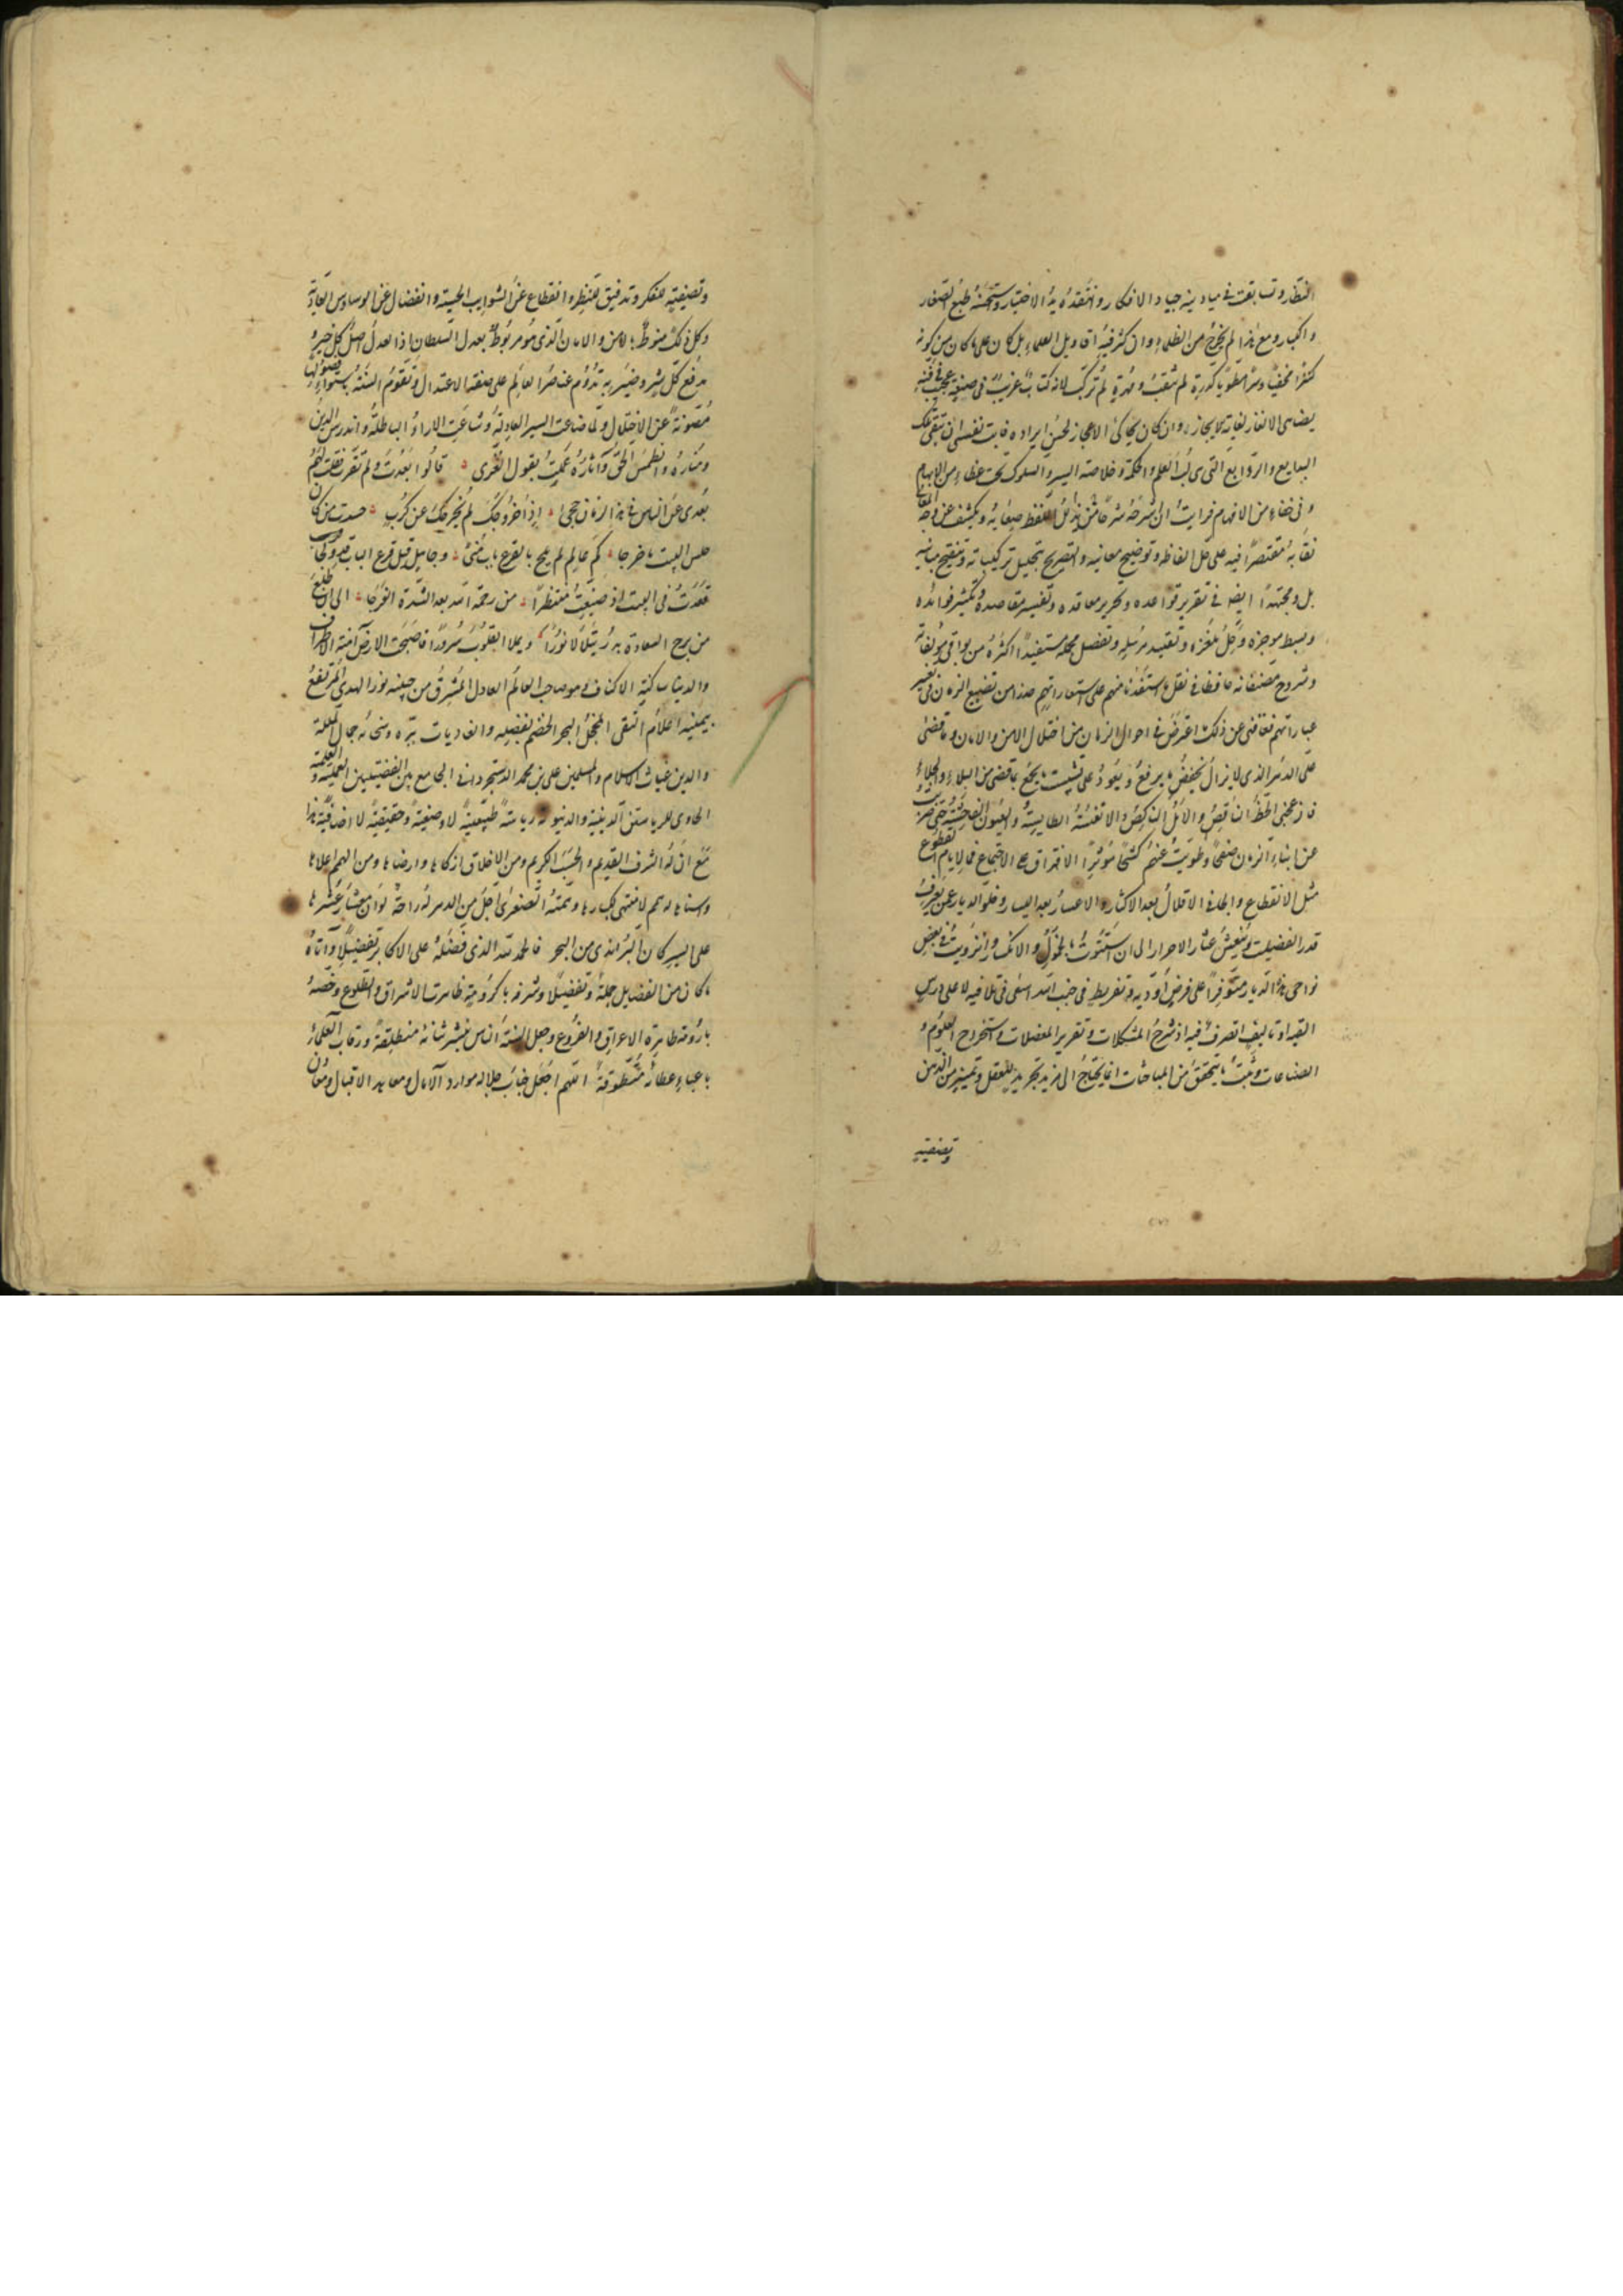 النظار وتسابقت في ميادينه جياد الافكار وانتقده يد الاختيار واستحسنه طبع الصغار
والكبار ومع هذا لم يخرج من الظلماء وان كثر فيه اقاويل العلماء بل كان على ما كان من كونه
كنزا مخفيا وسرا مطويا كدرة لم تثقب ومهرة لم تركب لانه كتاب غريب في صنعته عجيب في فنه
يضاهي الالغاز لغاية الايجاز وان كان يحاكي الاعجاز لحسن ايراده فابت نفسي ان تبقى تلك
البدايع والروايع التي هي لب العلم والحكمة وخلاصة السير والسلوك تحت غطاء من الابهام
وفي خفاء من الافهام فرايت ان اشرحه شرحا يذلل من اللفظ صعابه ويكشف عن وجه المعاني
نقابه مقتصرا فيه على حل الفاظه وتوضيح معانيه والتصريح بتحليل تركيباته وتنقيح مبانيه
بل ومجتهدا ايضا في تقرير قواعده وتحرير معاقده وتفسير مقاصده وتكثير فوائده
وبسط موجزه وحل ملغزه وتقييد مرسله وتفصيل مجمله مستفيدا اكثره من بواقي مؤلفاته
وشروح مصنفاته محافظا في نقل ما استفدنا منهم على استعاراتهم حذرا من تضييع الزمان في تغيير
عباراتهم فعاقني عن ذلك ما اعترض في احوال الزمان من اختلال الامن والامان وما قضى
على الدهر الذي لا يزال يخفض ما يرفع ويعود على تشتيت ما يجمع بما قضى من البلاء والجلاء
فازعجني الحظ الناقص والامل الناكص والاتفسة الطايشة والعيون الفاحشة حتى ضربت
عن ابناء الزمان صفحا وطويت عنهم كشحا مؤثرا الافتراق على الاجتماع فما لايام القطوع
مثل الانقطاع والجاني الاقلال بعد الاكثار والاعسار بعد اليسار وخلو الديار عمن يعرف
قدر الفضيلة وينعش عثار الاحرار الى ان استترت بالخمول والانكسار وانزويت في بعض
نواحي هذه الديار متوفرا على فرض اؤديه وتفريط في جنب الله اسعى في تلافيه لا على درس
القيه او تاليف اتصرف فيه اذ شرح المشكلات وتقرير المعضلات واستخراج العلوم و
الصناعات وثبت ما يتحقق من المباحثات انما يحتاج الى مزيد تجريد للعقل وتمييز من الذهن
وتصفيته
وتصفيته للفكر وتدقيق للنظر وانقطاع عن الشوايب الحسية وانفصال عن الوساوس العادية
وكل ذلك منوط بالامن والامان الذي هو مربوط بعدل السلطان اذ العدل اصل كل خير و
مدفع كل شر وضير به تدوم عناصر العالم على صفة الاعتدال وتقوم السنة باستواء فصولها
مصونة عن الاختلال ولما ضاعت السير العادلة وشاعت الاراء الباطلة واندرس الدين
ومناره وانطمس الحق وآثاره عملت بقول الغزى قالوا بعدت ولم تقرب فقلت لهم
بعدي عن الناس في هذا الزمان حجى اذا خروجك لم يخرجك عن كرب حسدت من كان
حلس البيت ما خرجا كم عالم لم يلج بالقرع باب منى وجاهل قبل قرع الباب قد ولجا
قعدت في البيت اذ ضيعت منتظرا من رحمة الله بعد الشدة الفرجا الى ان طلع
من برج السعادة بدر يتلالا نورا ويملا القلوب سرورا فاصبحت الارض آمنة الاطراف
والدنيا ساكنة الاكناف وهو صاحب العالم العادل المشرق من جبينه نور الهدى المرتفع
بيمينه اعلام التقى المخجل البحر الخضم بفضله والغاديات ببره وسخائه جمال الملة
والدين غياث الاسلام والمسلمين علي بن محمد الدستجرداني الجامع بين الفضيلتين العملية والعلمية
الحاوي للرياستين الدينية والدنيوية رياسة طبيعية لا وضعية وحقيقية لا اضافية هذا
مع ان له الشرف القديم والحسب الكريم ومن الاخلاق ازكاها وارضاها ومن الهمم اعلاها
واسناها له همم لا منتهى لكبارها وهمته الصغرى اجل من الدهر له راحة لو ان معشار عشرها
على البر كان البر اندى من البحر فالحمد لله الذي فضله على الاكابر تفضيلا وآتاه
ما كان من الفضايل جملة وتفصيلا وشرفه باكرومة ظاهرة الاشراق والطلوع وخصه
بارومة طاهرة الاعراق والفروع وجعل السنة الناس بنشر ثنائه منطلقة ورقاب العلماء
باعباء عطائه متطوقة اللهم اجعل جناب جلاله موارد الآمال ومعاهد الاقبال ومعان